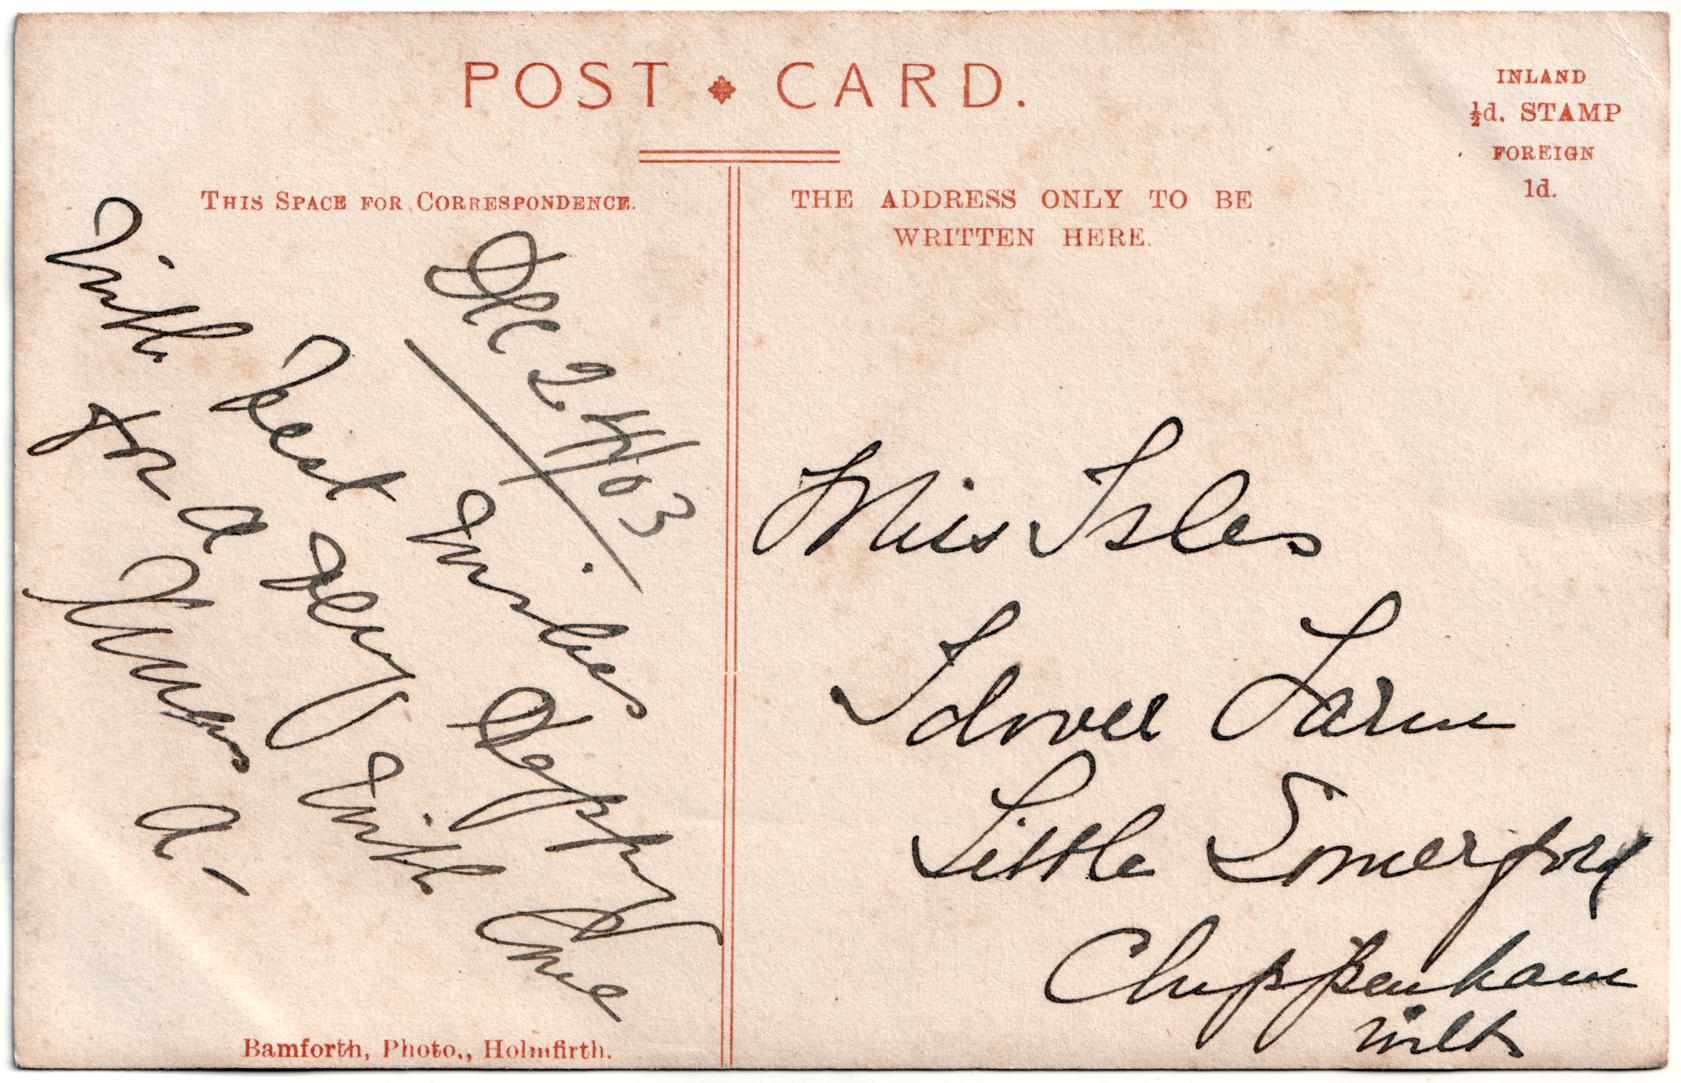 POST CARD.
INLAND
½d. STAMP
FOREIGN
1d.
THIS SPACE FOR CORRESPONDENCE.
THE ADDRESS ONLY TO BE
WRITTEN HERE.
Dec 24/03
With best wishes
for a very Happy
Xmas with love
A -
Miss Isles
Idover Farm
Little Somerford
Chippenham
Wilts
Bamforth, Photo., Holmfirth.